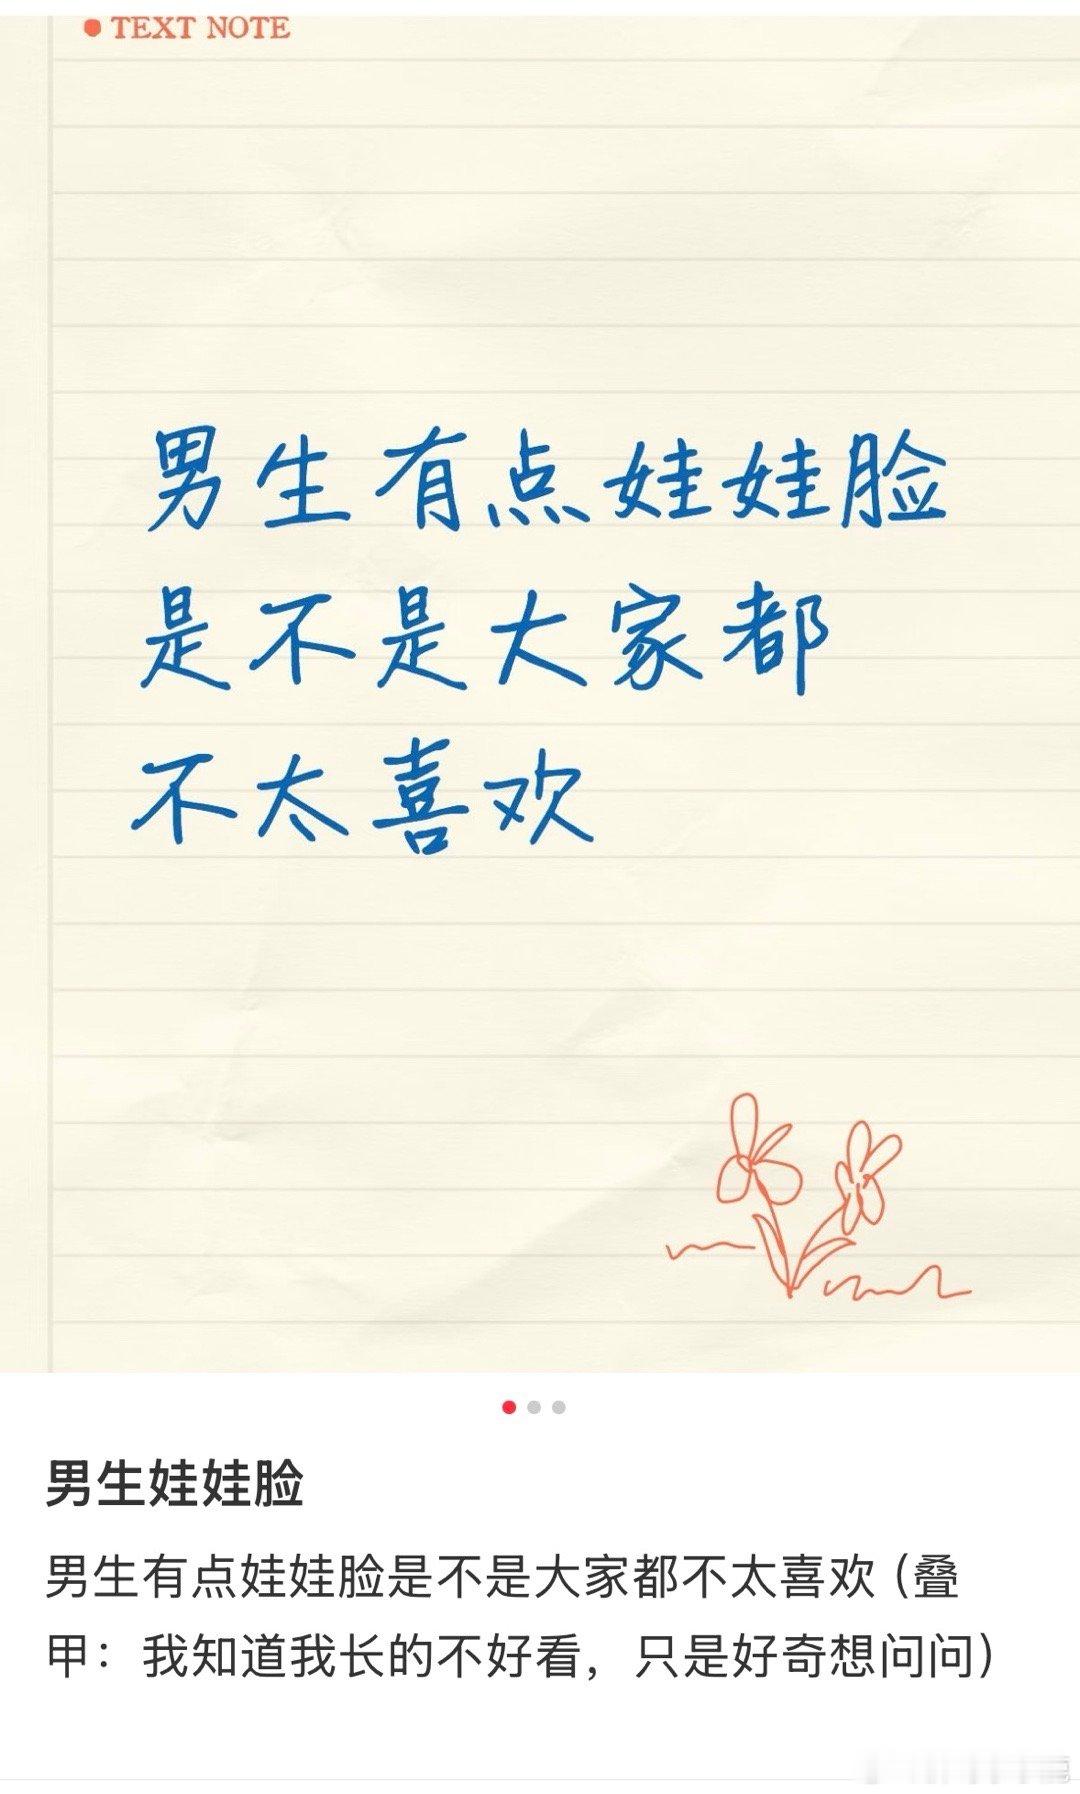 TEXT NOTE
男生有点娃娃脸
是不是大家都
不太喜欢
男生娃娃脸
男生有点娃娃脸是不是大家都不太喜欢(叠
甲：我知道我长的不好看，只是好奇想问问)